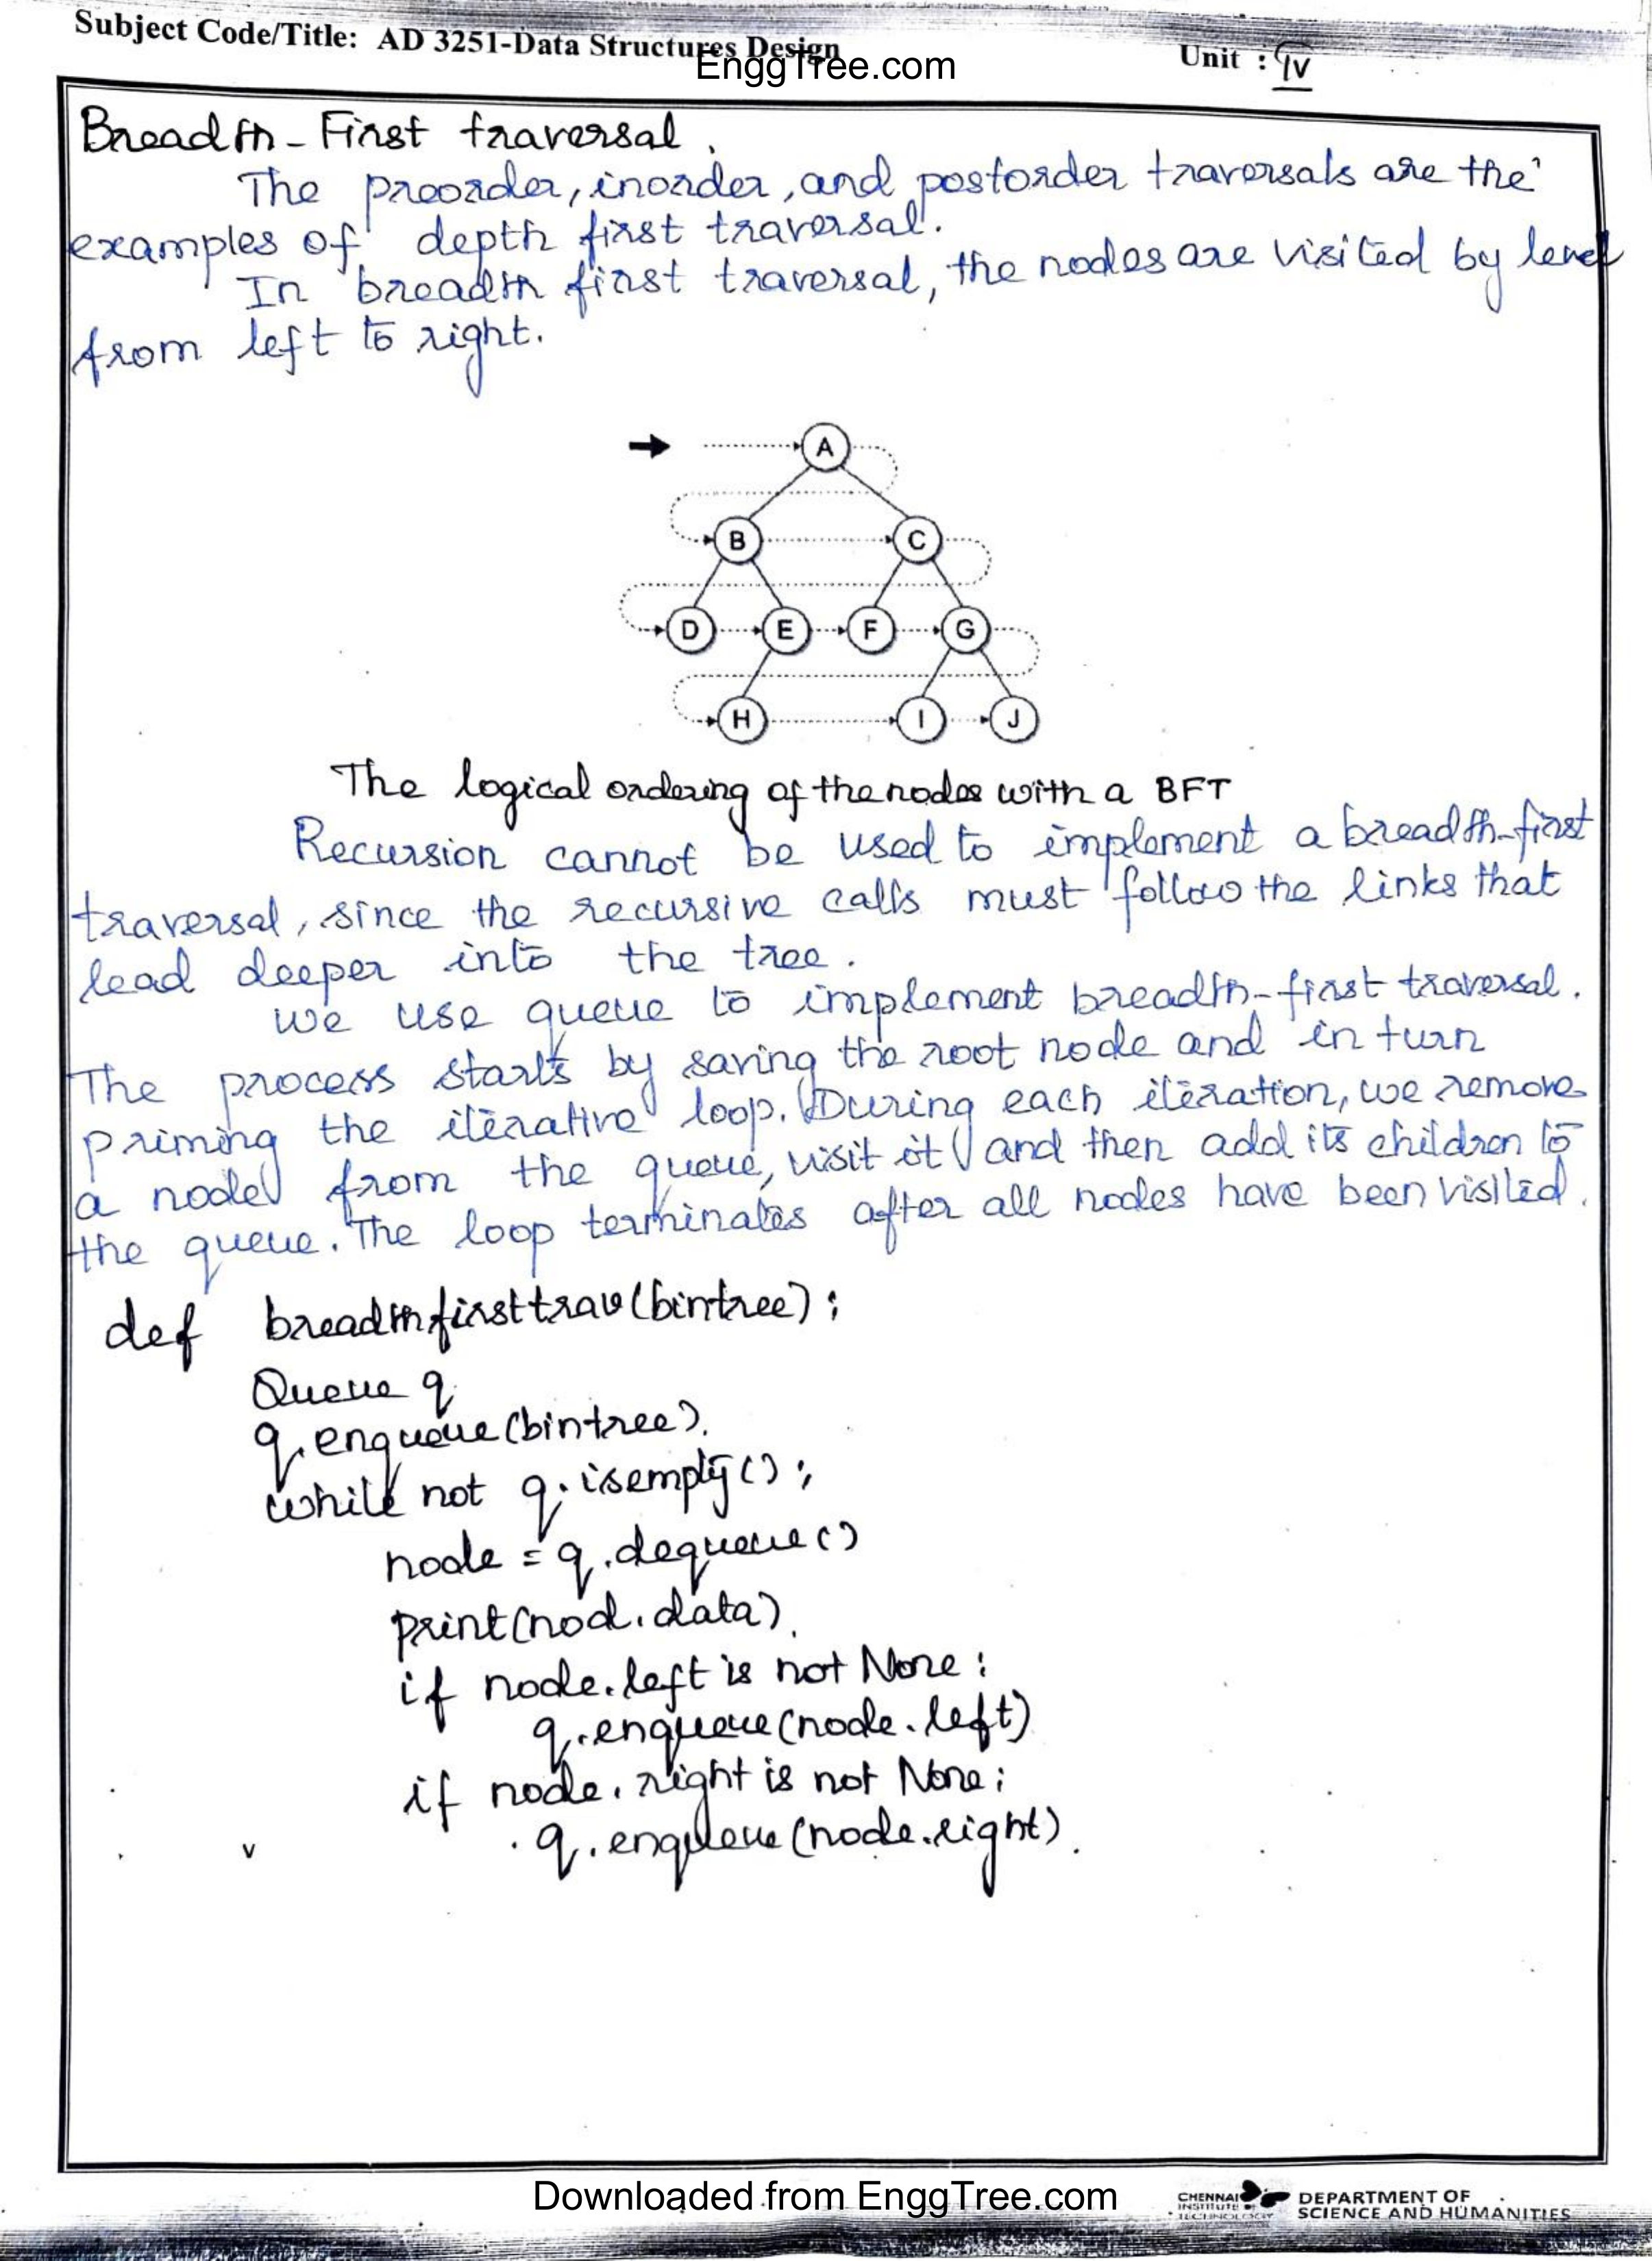 Subject Code/Title: AD 3251-Data Structures Design
EnggTree.com
Unit : IV
Breadth-First traversal.
The preorder, inorder, and postorder traversals are the
examples of depth first traversal.
In breadth first traversal, the nodes are visited by level
from left to right.
A
B C
D E F G
H I J
The logical ordering of the nodes with a BFT
Recursion cannot be used to implement a breadth-first
traversal, since the recursive calls must follow the links that
lead deeper into the tree.
We use queue to implement breadth-first traversal.
The process starts by saving the root node and in turn
priming the iterative loop. During each iteration, we remove
a node from the queue, visit it and then add its children to
the queue. The loop terminates after all nodes have been visited.
def breadthfirsttrav(bintree):
Queue q
q.enqueue(bintree).
while not q.isempty():
node = q.dequeue()
print(nod.data).
if node.left is not None:
q.enqueue(node.left)
if node.right is not None:
q.enqueue(node.right).
v
Downloaded from EnggTree.com
CHENNAI
INSTITUTE OF
TECHNOLOGY
DEPARTMENT OF
SCIENCE AND HUMANITIES